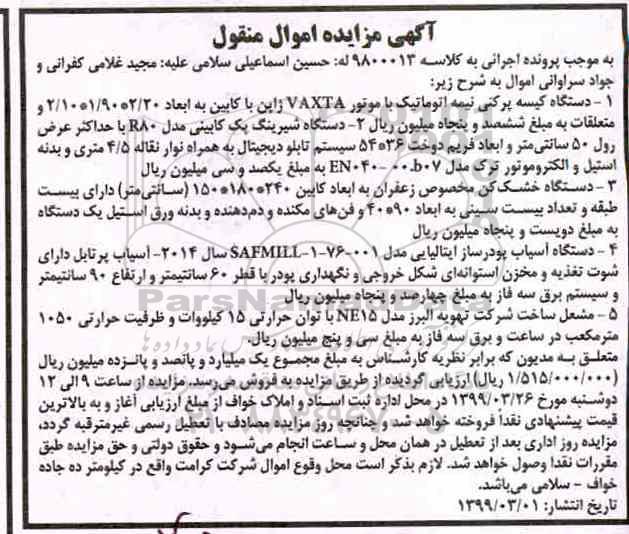 آگهی مزایده اموال منقول
به موجب پرونده اجرائی به کلاسه ۹۸۰۰۰۱۳ له: حسین اسماعیلی سلامی علیه: مجید غلامی کفرانی و
جواد سراوانی اموال به شرح زیر:
۱ - دستگاه کیسه پرکنی نیمه اتوماتیک با موتور VAXTA ژاپن با کابین به ابعاد ۲/۲۰*۱/۹۰*۲/۱۰ و
متعلقات به مبلغ ششصد و پنجاه میلیون ریال ۲- دستگاه شیرینگ پک کابینی مدل RA۸۰ با حداکثر عرض
رول ۵۰ سانتی‌متر و ابعاد فریم دوخت ۳۶*۵۴ سیستم تابلو دیجیتال به همراه نوار نقاله ۴/۵ متری و بدنه
استیل و الکتروموتور ترک مدل EN۰۴۰-۰۰.b۰۷ به مبلغ یکصد و سی میلیون ریال
۳ - دستگاه خشک‌کن مخصوص زعفران به ابعاد کابین ۲۴۰*۱۸۰*۱۵۰ (سانتی‌متر) دارای بیست
طبقه و تعداد بیست سینی به ابعاد ۹۰*۴۰ و فن‌های مکنده و دم‌دهنده و بدنه ورق استیل یک دستگاه
به مبلغ دویست و پنجاه میلیون ریال
۴ - دستگاه آسیاب پودرساز ایتالیایی مدل SAFMILL-۱-۷۶-۰۰۱ سال ۲۰۱۴- آسیاب پرتابل دارای
شوت تغذیه و مخزن استوانه‌ای شکل خروجی و نگهداری پودر با قطر ۶۰ سانتیمتر و ارتفاع ۹۰ سانتیمتر
و سیستم برق سه فاز به مبلغ چهارصد و پنجاه میلیون ریال
۵ - مشعل ساخت شرکت تهویه البرز مدل NE۱۵ با توان حرارتی ۱۵ کیلووات و ظرفیت حرارتی ۱۰۵۰
مترمکعب در ساعت و برق سه فاز به مبلغ سی و پنج میلیون ریال.
متعلق به مدیون که برابر نظریه کارشناس به مبلغ مجموع یک میلیارد و پانصد و پانزده میلیون ریال
(۱/۵۱۵/۰۰۰/۰۰۰ ریال) ارزیابی گردیده از طریق مزایده به فروش می‌رسد. مزایده از ساعت ۹ الی ۱۲
دوشنبه مورخ ۱۳۹۹/۰۳/۲۶ در محل اداره ثبت اسناد و املاک خواف از مبلغ ارزیابی آغاز و به بالاترین
قیمت پیشنهادی نقداً فروخته خواهد شد و چنانچه روز مزایده مصادف با تعطیل رسمی غیرمترقبه گردد،
مزایده روز اداری بعد از تعطیل در همان محل و ساعت انجام می‌شود و حقوق دولتی و حق مزایده طبق
مقررات نقدا وصول خواهد شد. لازم بذکر است محل وقوع اموال شرکت کرامت واقع در کیلومتر ده جاده
خواف - سلامی می‌باشد.
تاریخ انتشار: ۱۳۹۹/۰۳/۰۱